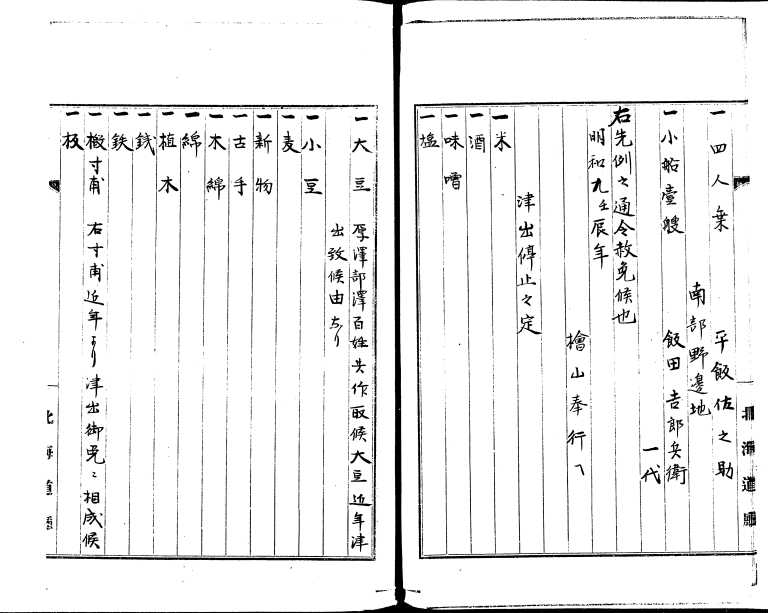 一四人乗　平飯佐之助
南部野邊地
一小船壹艘　飯田吉郎兵衛
一代
右先例之通令赦免候也
明和九壬辰年
檜山奉行
津出停止之定
一米
一酒
一味噌
一塩
一大豆　厚澤部澤百姓共作取候大豆近年津
出致候由
一小豆
一麦
一新物
一古手
一木綿
一綿
一植木
一銭
一鉄
一椴寸甫　右寸甫近年より津出御免ニ相成候
一板
北海道廳